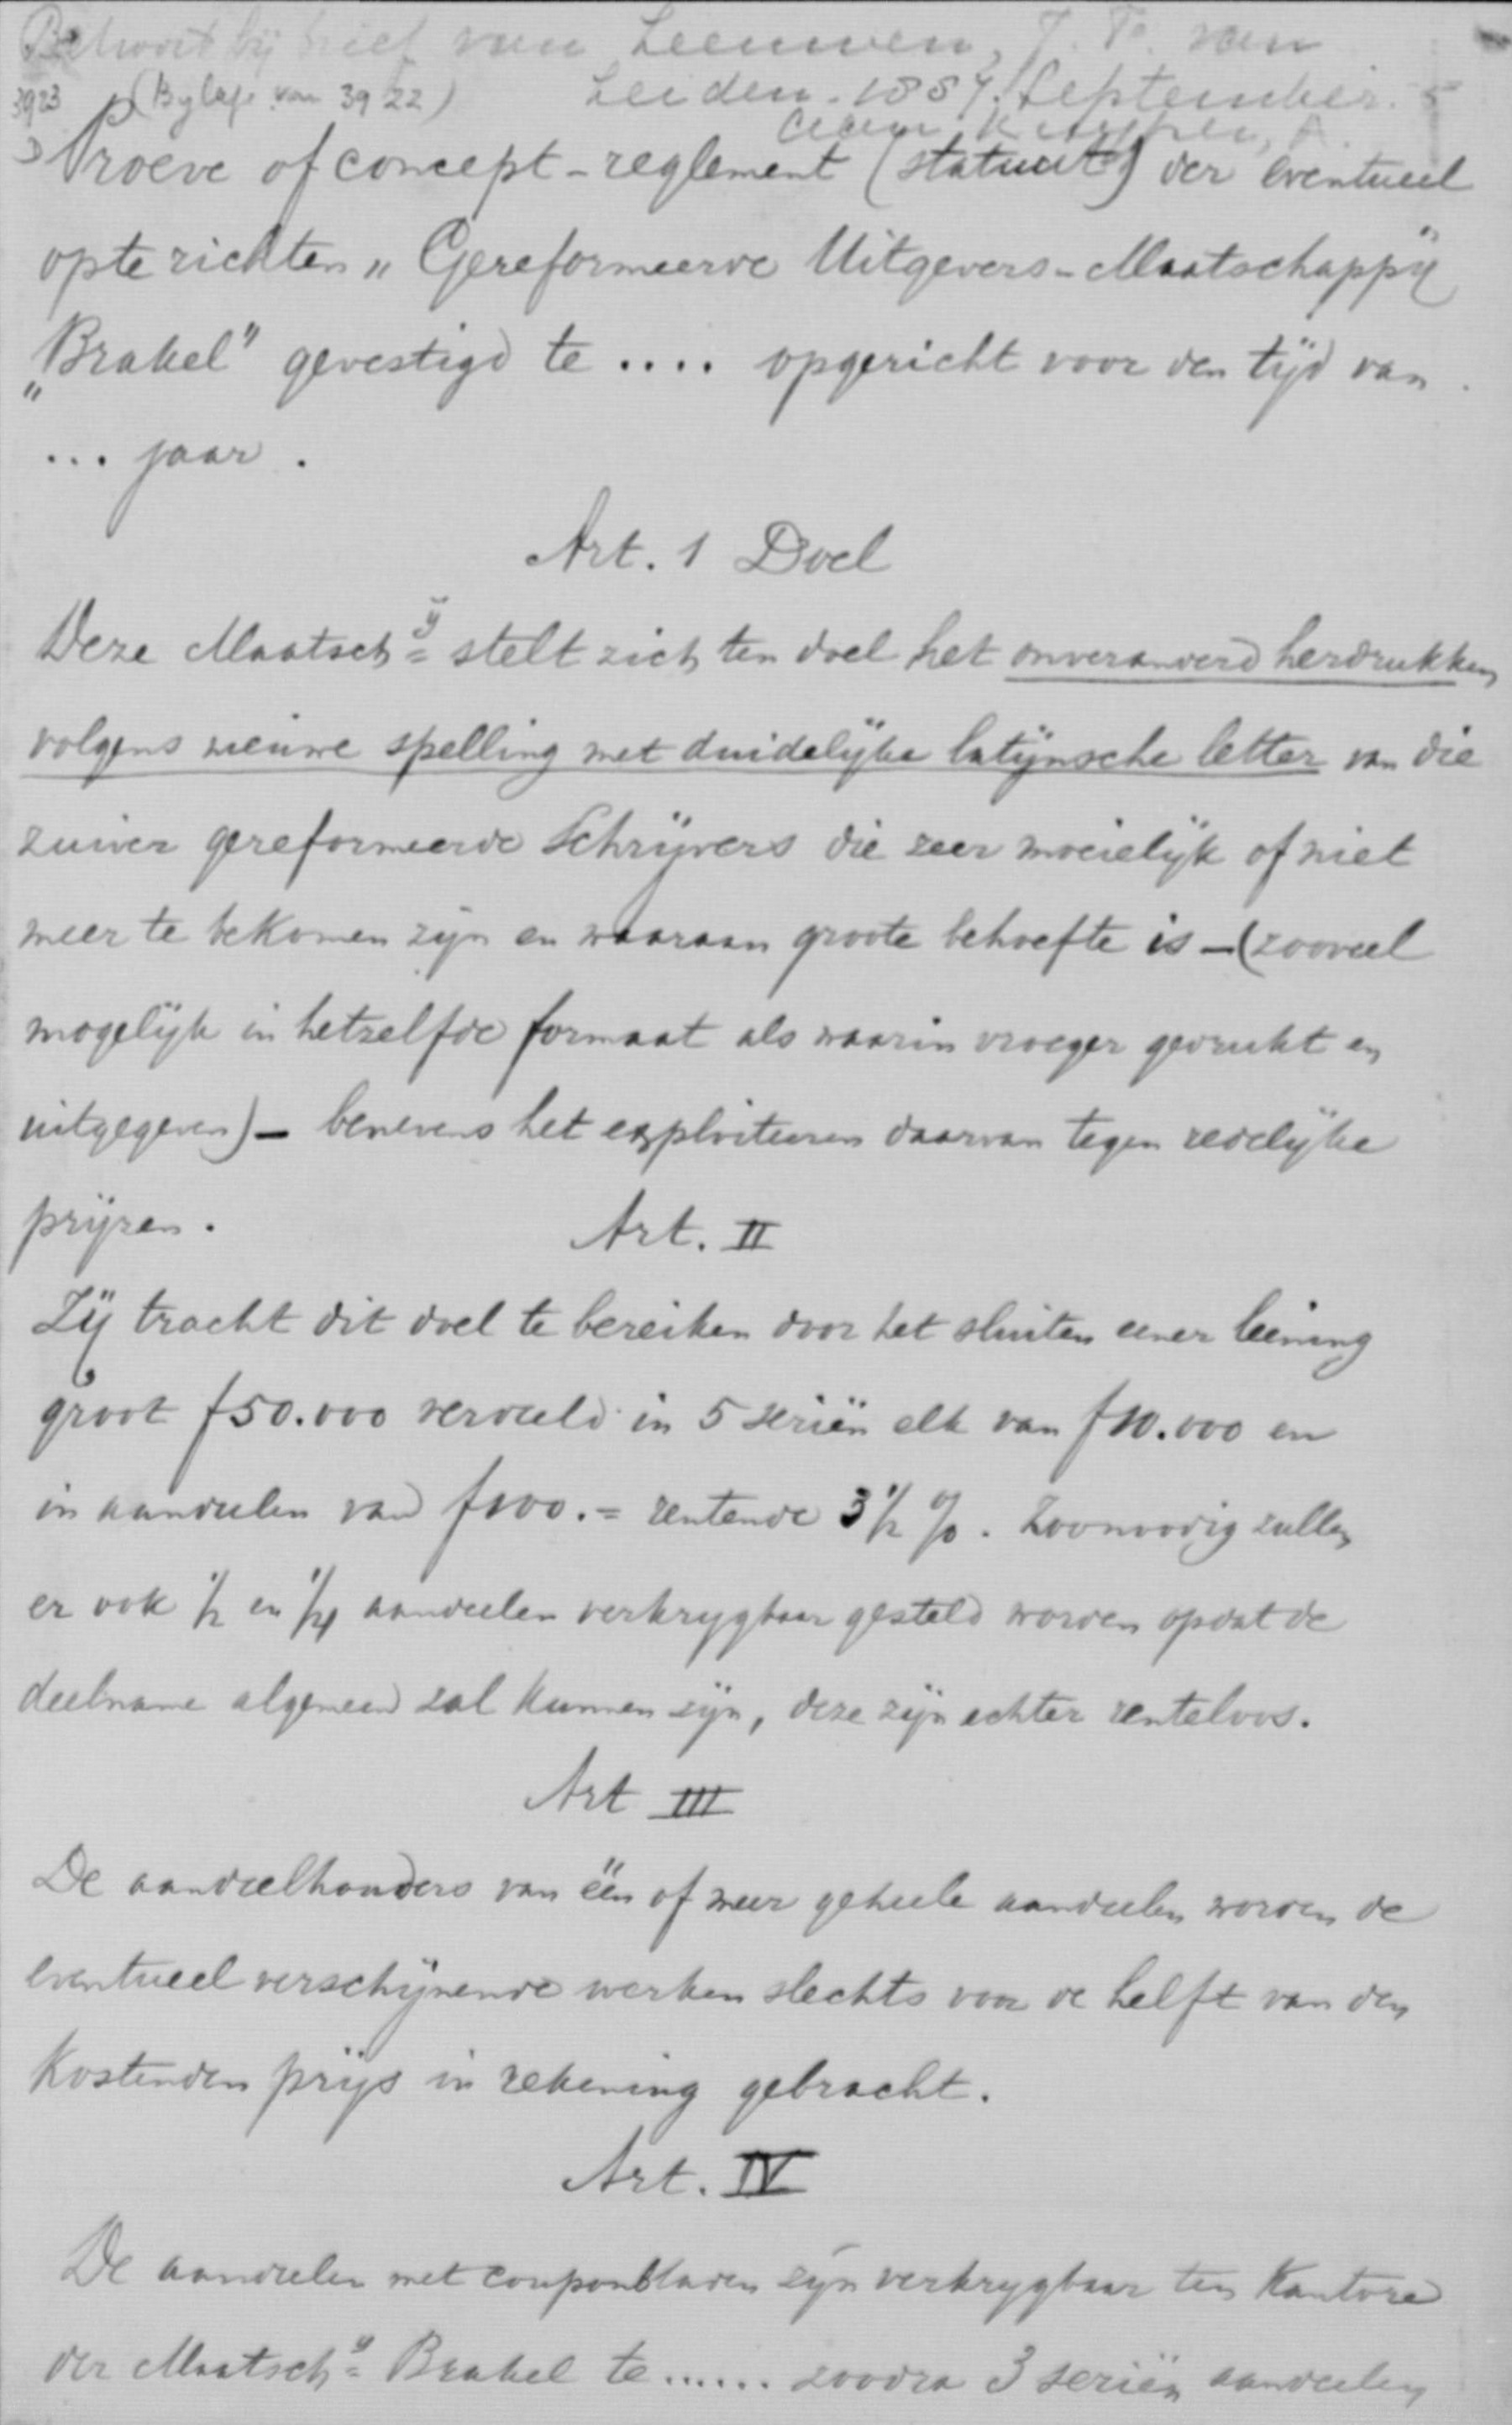 Behoort bij brief van Leeuwen, J. P. van
3923 (Bylage van 3922) Leiden. 1887. September. 5
aan Kuyper, A.
Proeve of concept-reglement (statuut) der eventueel
opte richten „Gereformeerde Uitgevers-Maatschappÿ"
„Brakel" gevestigd te .... opgericht voor den tÿd van
... jaar.
Art. 1 Doel
Deze Maatschÿ stelt zich ten doel het onveranderd herdrukken
volgens nieuwe spelling met duidelÿke latÿnsche letter van die
zuiver gereformeerde Schrÿvers die zeer moeielÿk of niet
meer te bekomen zÿn en waaraan groote behoefte is — (zooveel
mogelÿk in hetzelfde formaat als waarin vroeger gedrukt en
uitgegeven) — benevens het exploiteeren daarvan tegen redelÿke
prÿzen.
Art. II
Zÿ tracht dit doel te bereiken door het sluiten eener leening
groot f50.000 verdeeld in 5 seriën elk van f10.000 en
in aandeelen van f100.= rentende 3 1/2 %. Zoonoodig zullen
er ook 1/2 en 1/4 aandeelen verkrygbaar gesteld worden opdat de
deelname algemeen zal kunnen zÿn, deze zÿn echter renteloos.
Art III
De aandeelhouders van één of meer geheele aandeelen worden de
eventueel verschÿnende werken slechts voor de helft van den
kostenden prÿs in rekening gebracht.
Art. IV
De aandeelen met couponbladen zyn verkrygbaar ten Kantore
der Maatschy Brakel te ...... zoodra 3 seriën aandeelen